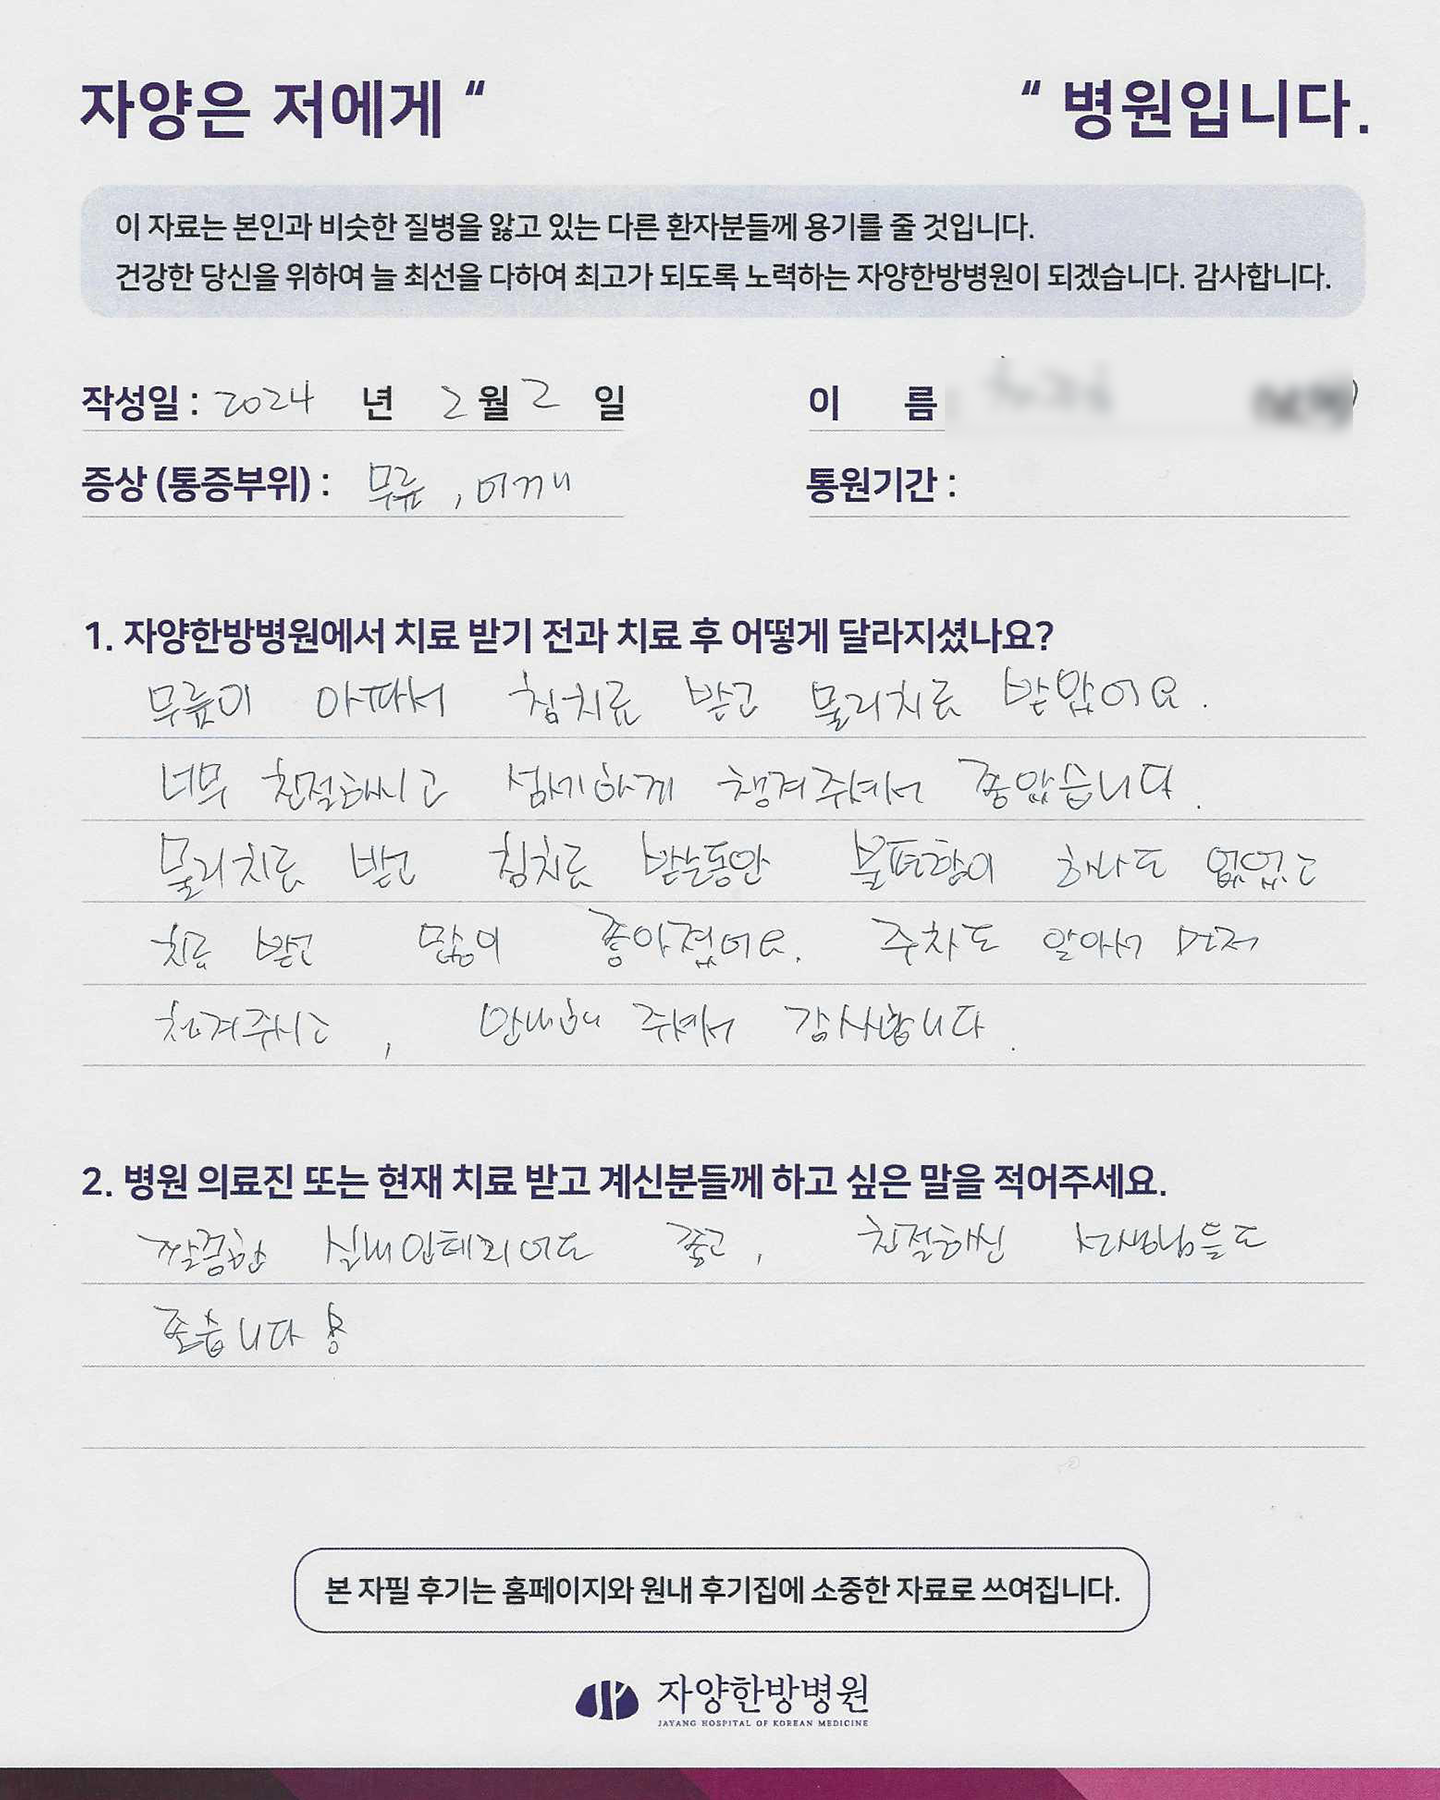 자양은 저에게 “ “ 병원입니다.
이 자료는 본인과 비슷한 질병을 앓고 있는 다른 환자분들께 용기를 줄 것입니다.
건강한 당신을 위하여 늘 최선을 다하여 최고가 되도록 노력하는 자양한방병원이 되겠습니다. 감사합니다.
작성일 : 2024 년 2 월 2 일 이 름
증상 (통증부위) : 무릎 , 어깨 통원기간 :
1. 자양한방병원에서 치료 받기 전과 치료 후 어떻게 달라지셨나요?
무릎이 아파서 침치료 받고 물리치료 받았어요.
너무 친절하시고 섬세하게 챙겨주셔서 좋았습니다.
물리치료 받고 침치료 받는동안 불편함이 하나도 없었고
치료 받고 많이 좋아졌어요. 주차도 알아서 먼저
챙겨주시고 , 안내해 주셔서 감사합니다.
2. 병원 의료진 또는 현재 치료 받고 계신분들께 하고 싶은 말을 적어주세요.
깔끔한 실내인테리어도 좋고, 친절하신 선생님들도
좋습니다
본 자필 후기는 홈페이지와 원내 후기집에 소중한 자료로 쓰여집니다.
자양한방병원
JAYANG HOSPITAL OF KOREAN MEDICINE